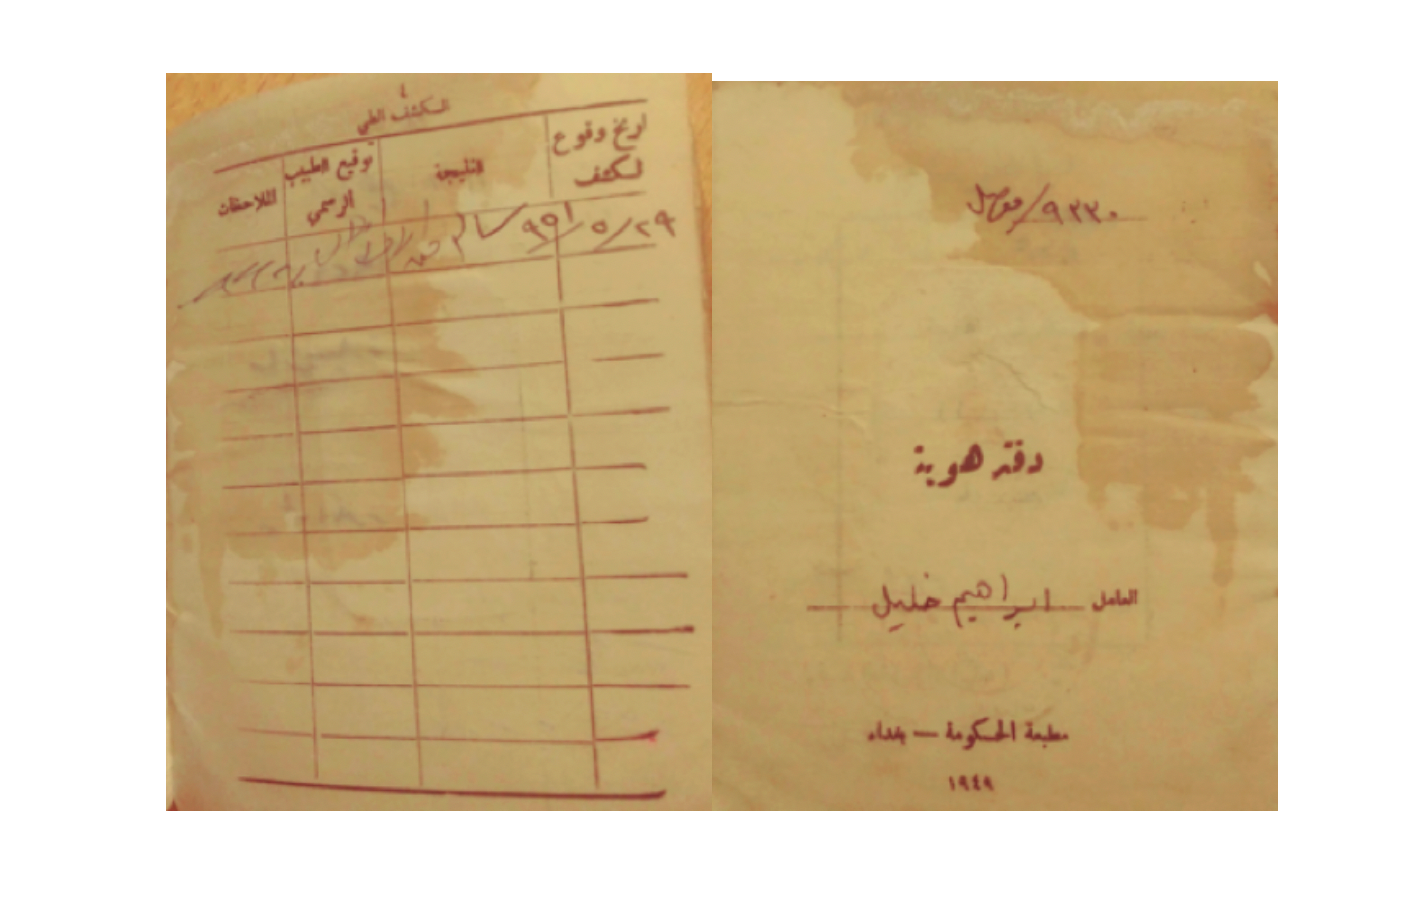 ٤
الكشف الطبي
اريخ وقوع لكشف
النتيجة
توقيع الطبيب الرسمي
الملاحظات
٢٩/٥/٩٥١ سالم من الامراض
٩٣٣٠/موصل
دفتر هوية
العامل ابراهيم خليل
مطبعة الحكومة — بغداد
١٩٤٩